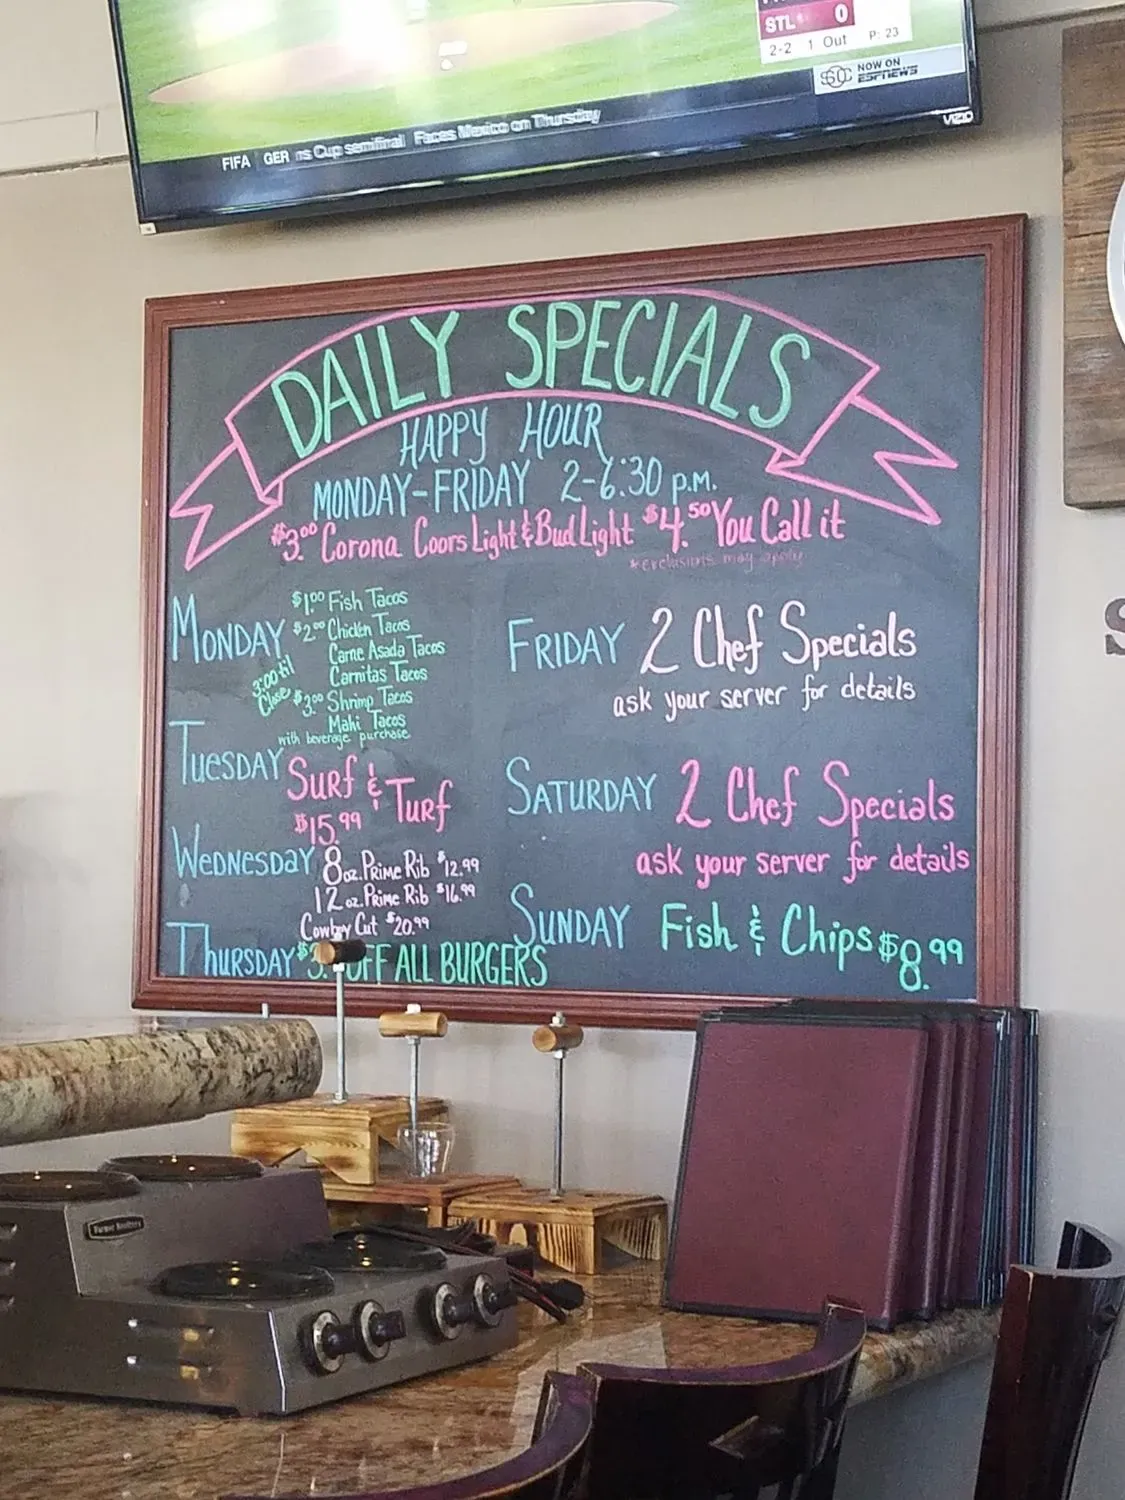 STL 0
2-2 1 Out P: 23
NOW ON
ESPNEWS
VIZIO
FIFA GER ns Cup semifinal Faces Mexico on Thursday
DAILY SPECIALS
HAPPY HOUR
MONDAY-FRIDAY 2-6:30 P.M.
$3.00 Corona Coors Light & Bud Light $4.50 You Call it
*exclusions may apply
MONDAY
3:00 til
Close
$1.00 Fish Tacos
$2.00 Chicken Tacos
Carne Asada Tacos
Carnitas Tacos
$3.00 Shrimp Tacos
Mahi Tacos
with beverage purchase
TUESDAY Surf & Turf
$15.99
WEDNESDAY 8oz. Prime Rib $12.99
12oz. Prime Rib $16.99
Cowboy Cut $20.99
THURSDAY $3. OFF ALL BURGERS
FRIDAY 2 Chef Specials
ask your server for details
SATURDAY 2 Chef Specials
ask your server for details
SUNDAY Fish & Chips $8.99
S